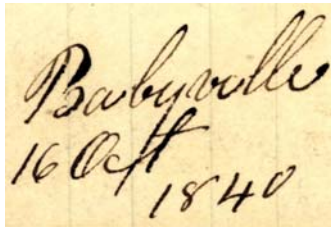 Babyville
16 Oct
1840